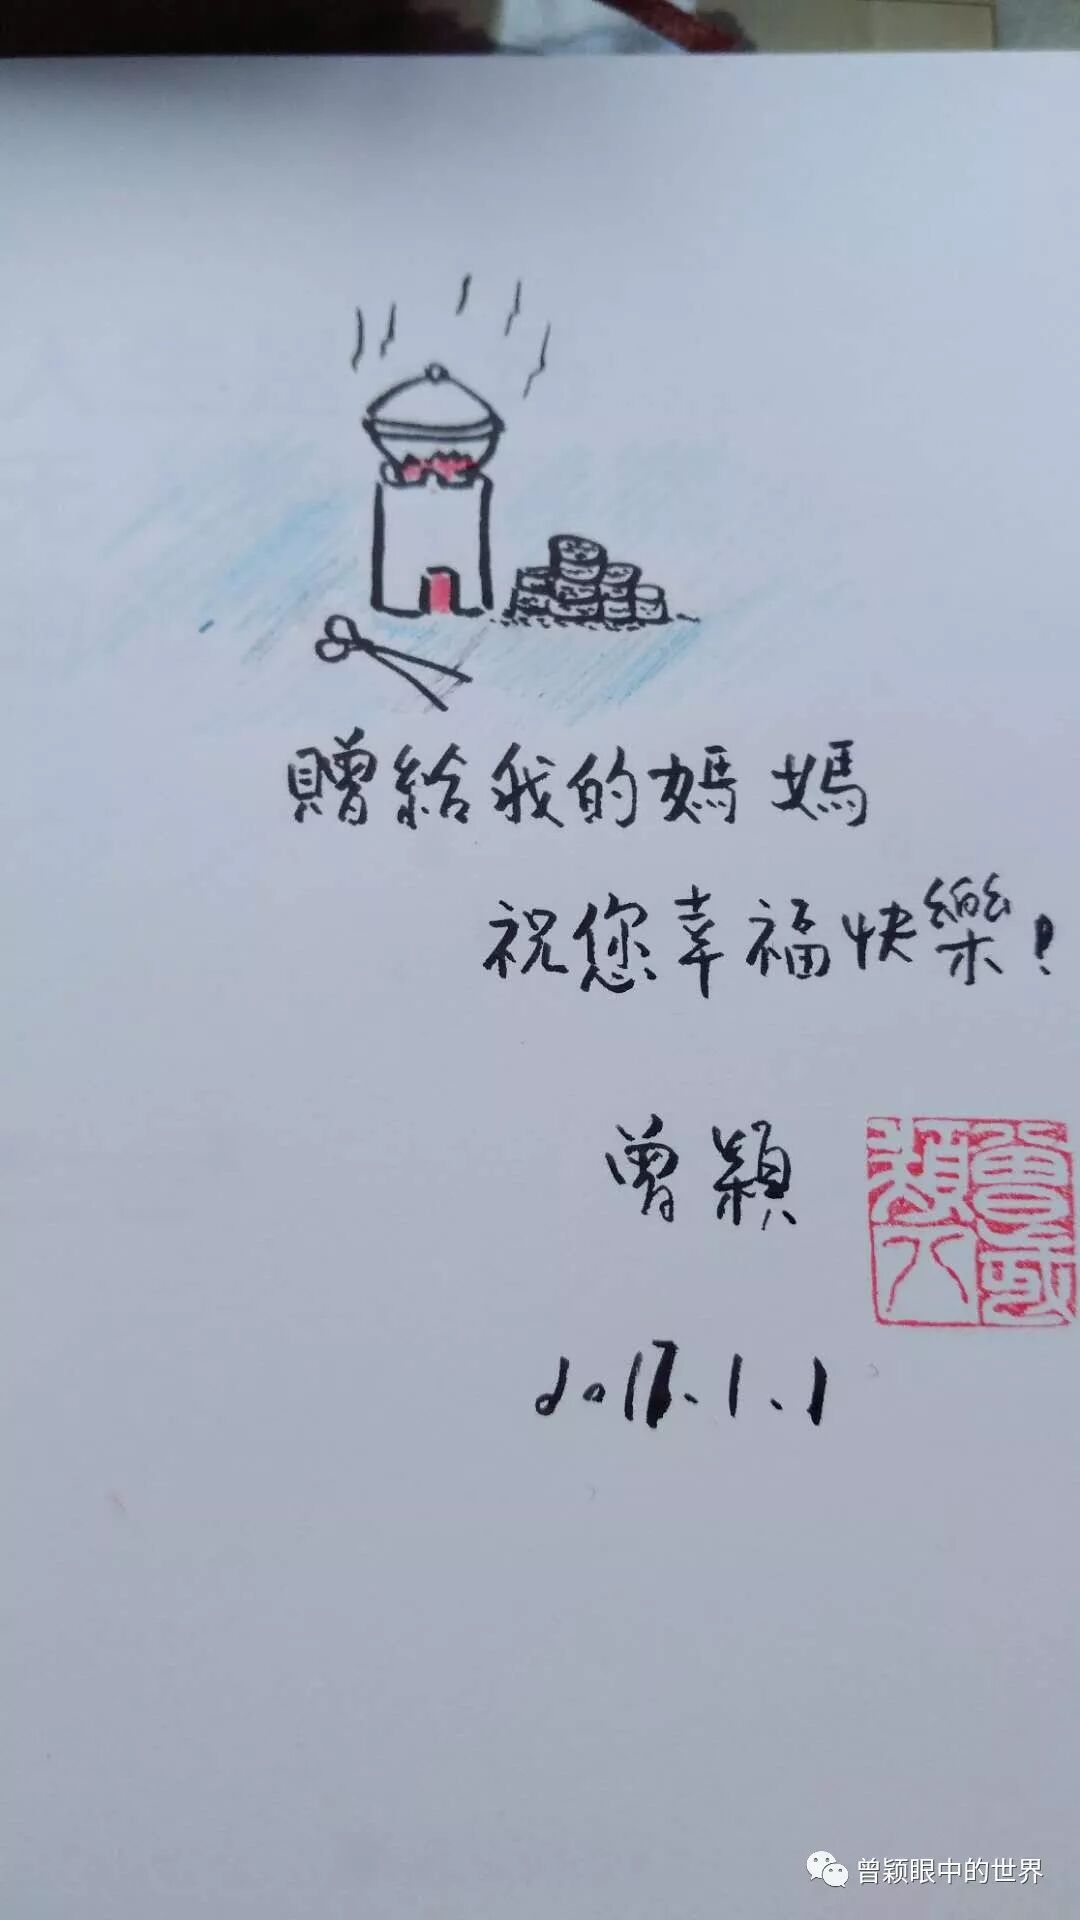 贈給我的媽媽
祝您幸福快樂！
曾穎
2017.1.1
曾颖眼中的世界